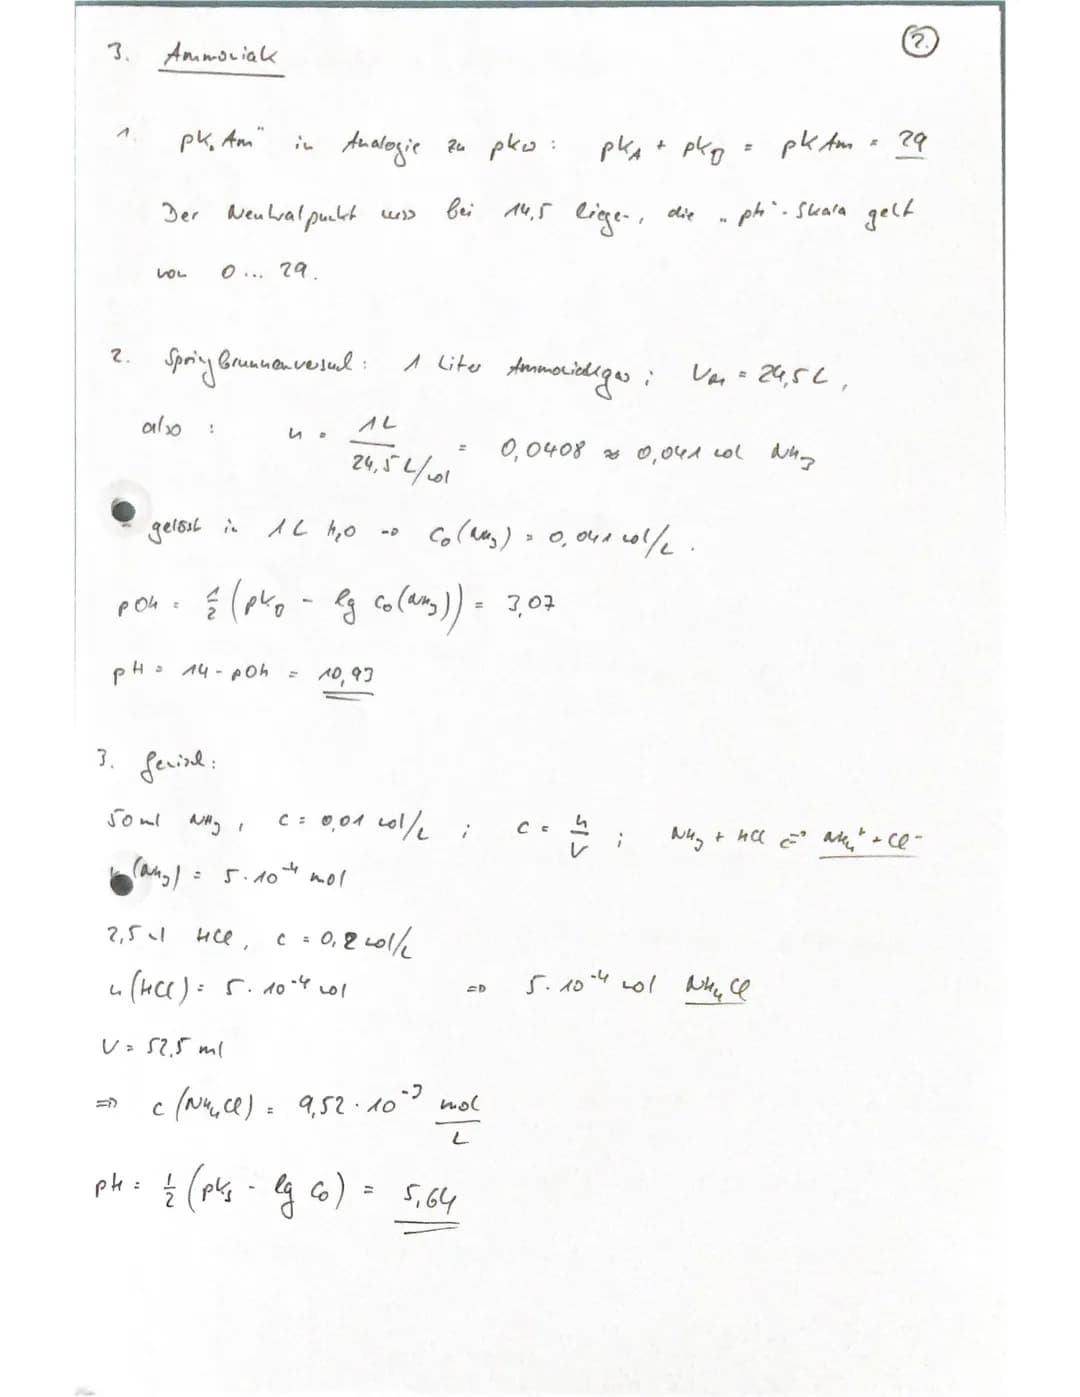 2.
3. Ammoniak
1. pK„Am" in Analogie zu pKw : pKA + pKB = pKAm = 29
Der Neutralpunkt muss bei 14,5 liegen, die „pH"-Skala geht
von 0 ... 29.
2. Springbrunnenversuch : 1 Liter Ammoniakgas ; Vm = 24,5 L,
also : n = 1L / 24,5 L/mol = 0,0408 ≈ 0,041 mol NH3
gelöst in 1L H2O → C0(NH3) = 0,041 mol/L .
pOH = 1/2 (pKB - lg C0(NH3)) = 3,07
pH = 14 - pOH = 10,93
3. Gemisch :
50ml NH3 , C = 0,01 mol/L ; C = n/V ; NH3 + HCl ⇌ NH4+ + Cl-
n(NH3) = 5 · 10-4 mol
2,5 ml HCl, C = 0,2 mol/L
n(HCl) = 5 · 10-4 mol ⇒ 5 · 10-4 mol NH4Cl
V = 52,5 ml
⇒ c(NH4Cl) = 9,52 · 10-3 mol/L
pH = 1/2 (pKS - lg C0) = 5,64